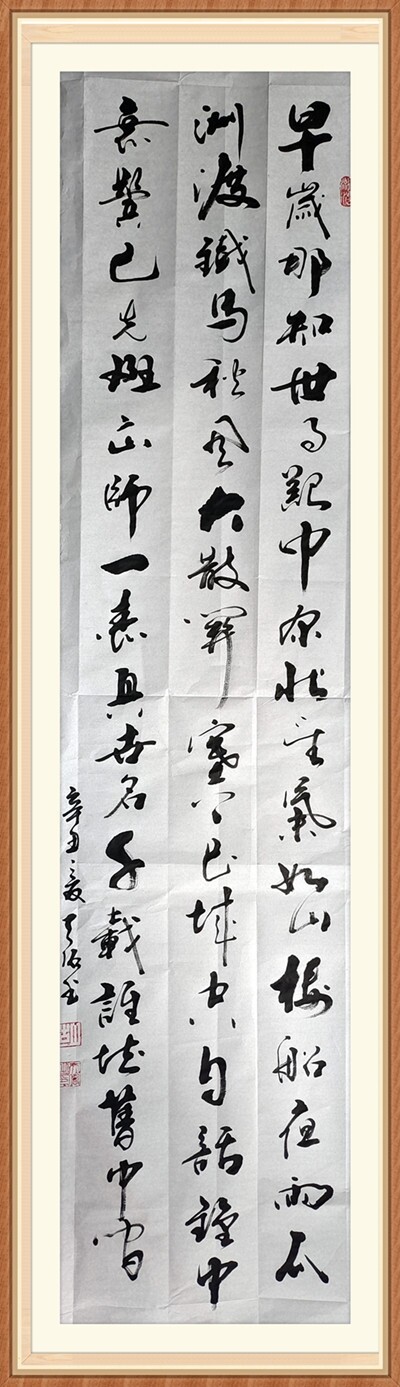 早歲那知世事艱中原北望氣如山樓船夜雨瓜
洲渡鐵馬秋風大散關塞上長城空自話鏡中
衰鬢已先斑出師一表真世名千載誰堪舊中間
辛丑之夏 书